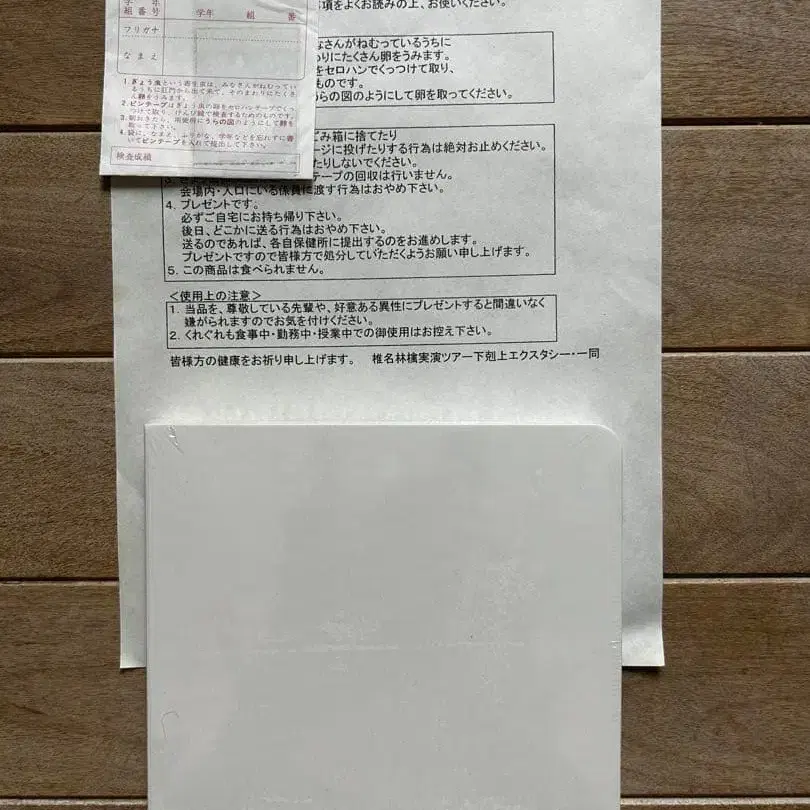 学年
組番号
学年 組 番
フリガナ
なまえ
1.ぎょう虫という寄生虫は、みなさんがねむってい
るうちに肛門から出て来て、そのまわりにたくさ
ん卵をうみます。
2.ピンテープはぎょう虫の卵をセロハンテープでくっ
つけて取り、けんび鏡で検査するためのものです。
3.朝おきたら、用便前にうらの図のようにして卵を
取って下さい。
4.袋に、なまえ、ふりがな、学年などを忘れずに書
いてピンテープを入れて提出して下さい。
検査成績
項をよくお読みの上、お使いください。
なさんがねむっているうちに
りにたくさん卵をうみます。
をセロハンでくっつけて取り、
ものです。
らの図のようにして卵を取ってください。
ごみ箱に捨てたり
ージに投げたりする行為は絶対お止めください。
たりしないでください。
テープの回収は行いません。
会場内・人口にいる係員に渡す行為はおやめ下さい。
4. プレゼントです。
必ずご自宅にお持ち帰り下さい。
後日、どこかに送る行為はおやめ下さい。
送るのであれば、各自保健所に提出するのをお進めします。
プレゼントですので皆様方で処分していただくようお願い申し上げます。
5. この商品は食べられません。
<使用上の注意>
1. 当品を、尊敬している先輩や、好意ある異性にプレゼントすると間違いなく
嫌がられますのでお気を付けください。
2. くれぐれも食事中・勤務中・授業中での御使用はお控え下さい。
皆様方の健康をお祈り申し上げます。 椎名林檎実演ツアー下剋上エクスタシー・一同